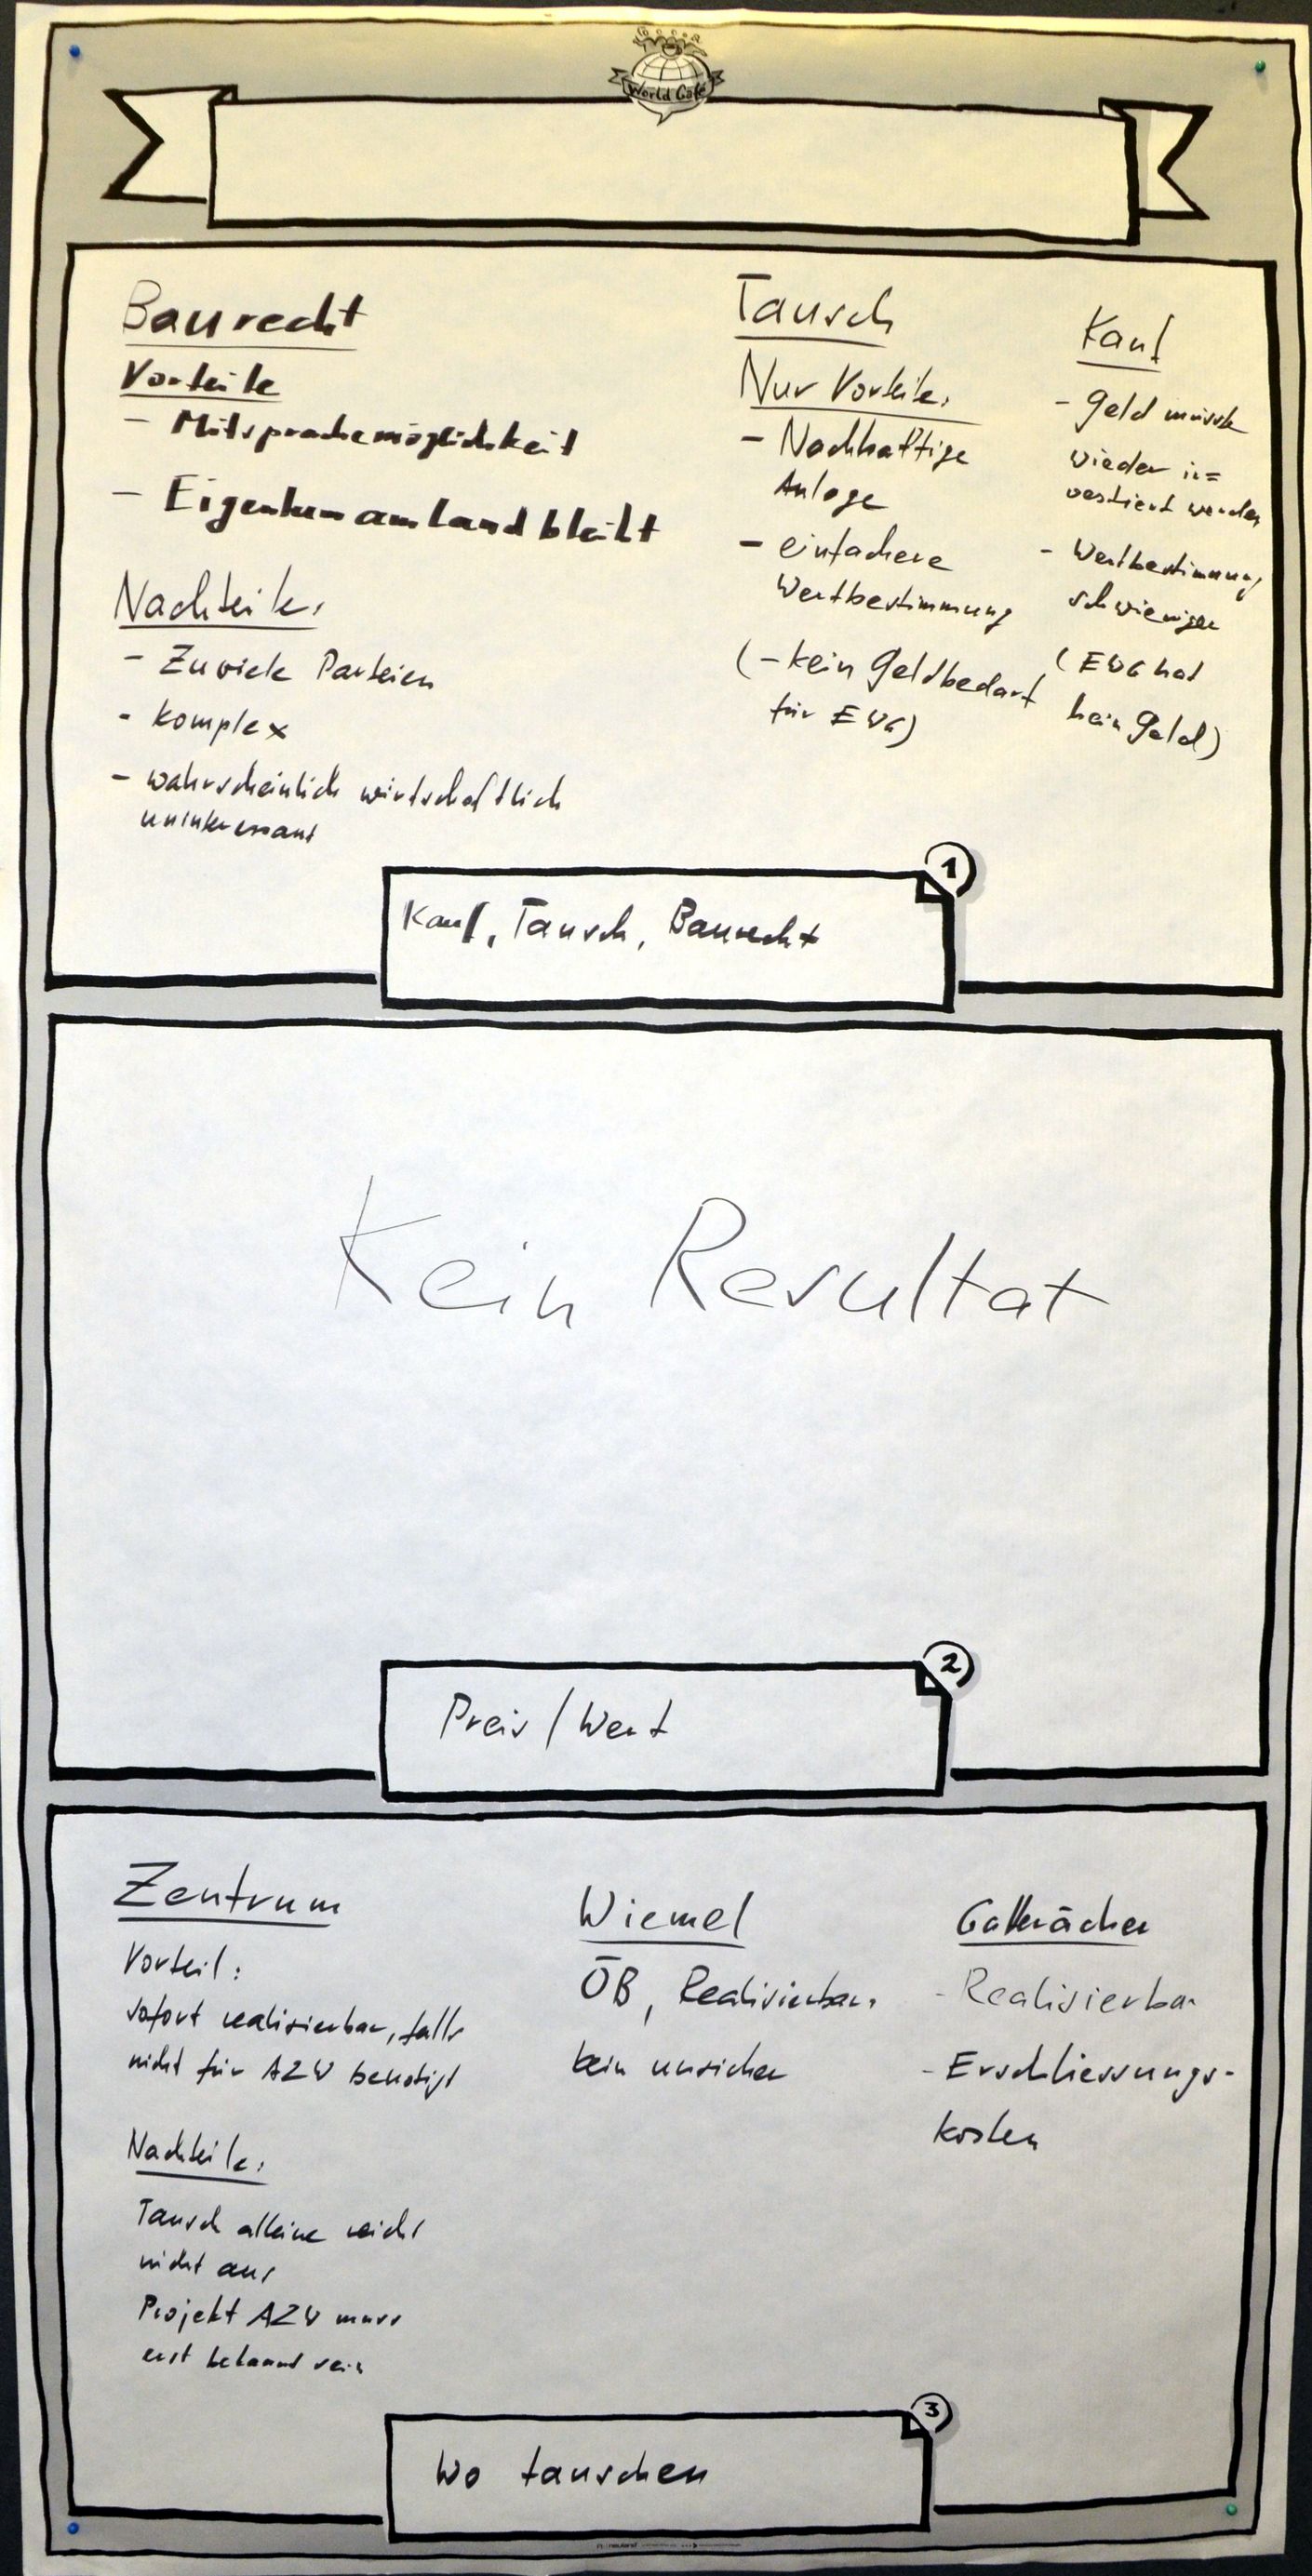 World Café
Baurecht
Vorteile
- Mitsprachemöglichkeit
- Eigentum am Land bleibt
Nachteile:
- Zuviele Parteien
- komplex
- wahrscheinlich wirtschaftlich
uninteressant
Tausch
Nur Vorteile:
- Nachhaltige
Anlage
- einfachere
Wertbestimmung
(- kein Geldbedarf
für EWG)
Kauf
- Geld müsste
wieder in=
vestiert werden
- Wertbestimmung
schwieriger
(EWG hat
kein Geld)
1
Kauf, Tausch, Baurecht
Kein Resultat
2
Preis / Wert
Zentrum
Vorteil:
sofort realisierbar, falls
nicht für AZW benötigt
Nachteile:
Tausch alleine reicht
nicht aus
Projekt AZW muss
erst bekannt sein
Wiemel
ÖB, Realisierbar.
keit unsicher
Galleräcker
- Realisierbar
- Erschliessungs-
kosten
3
Wo tauschen
neuland